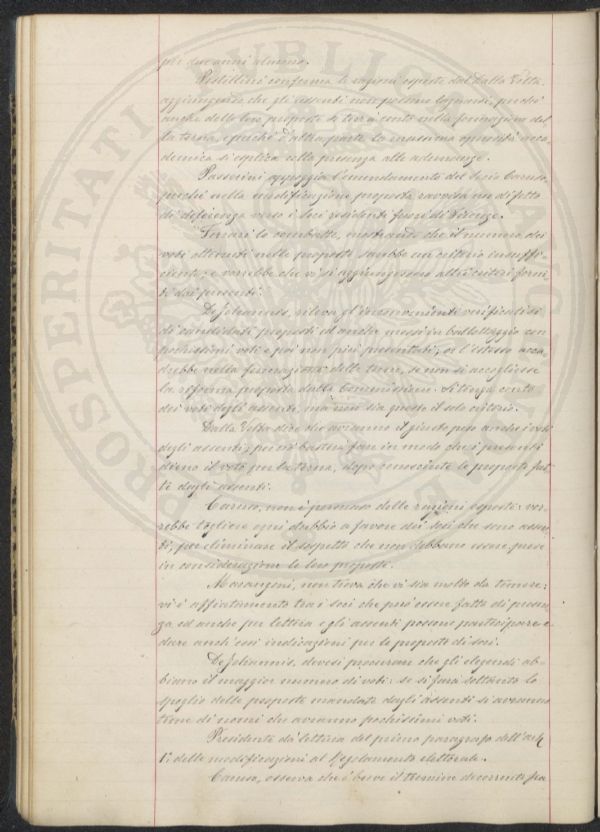 per due anni almeno.
Pestellini conferma le ragioni esposte dal Dalla Volta
aggiungendo che gli assenti non possono lagnarsi, perchè
anche delle loro proposte si terrà conto nella formazione del
la terna, e perchè d'altra parte la massima attività acca
demica si esplica colla presenza alle adunanze.
Passerini appoggia l'emendamento del socio Caruso,
perchè nella modificazione proposta ravvisa un difetto
di deferenza verso i soci residenti fuori di Firenze.
Ferrari lo combatte, mostrando che il numero dei
voti ottenuti nelle proposte sarebbe un criterio insuffi-
ciente; e vorrebbe che vi si aggiungessero altri criteri forni
ti dai presenti.
De Johannis, rileva gl'inconvenienti verificatisi
di candidati proposti ed anche messi in ballottaggio con
pochissimi voti e poi non più presentati; or l'istesso acca-
drebbe nella formazione delle terne, se non si accogliesse
la riforma proposta dalla Commissione. Si tenga conto
dei voti degli assenti, ma non sia questo il solo criterio.
Dalla Volta dice che avranno il giusto peso anche i voti
degli assenti; perciò basterà fare in modo che i presenti
diano il voto per la terna, dopo conosciute le proposte fat
te dagli assenti.
Caruso, non è persuaso delle ragioni esposte: vor
rebbe togliere ogni dubbio a favore dei soci che sono assen
ti; per eliminare il sospetto che non debbano essere prese
in considerazione le loro proposte.
Marangoni, non trova che vi sia molto da temere:
vi è affiatamento tra i soci che può essere fatto di presen
za ed anche per lettera e gli assenti possono partecipare e
dare anch'essi indicazioni per le proposte di soci.
De Johannis, devesi procurare che gli eligendi ab-
biano il maggior numero di voti: se si farà soltanto lo
spoglio delle proposte mandate dagli assenti si avranno
terne di nomi che avranno pochissimi voti.
Presidente dà lettura del primo paragrafo dell'art.
1º delle modificazioni al Regolamento elettorale.
Caruso, osserva che è breve il termine decorrente fra
PROSPERITATI PUBLICAE AUGENDAE